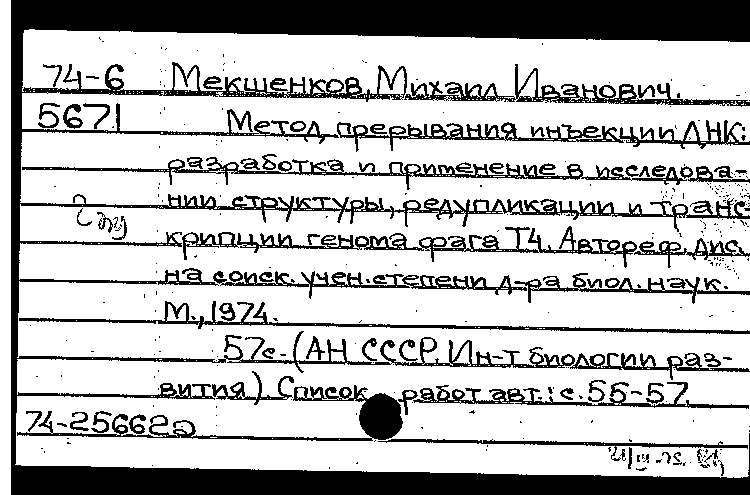 74-6 Мекшенков, Михаил Иванович.
5671 Метод прерывания инъекции ДНК:
разработка и применение в исследова-
нии структуры, редупликации и транс-
крипции генома фага Т4. Автореф. дис.
на соиск. учен. степени д-ра биол. наук.
М., 1974.
57с. (АН СССР. Ин-т биологии раз-
вития). Список работ авт.: с. 55-57.
74-25662